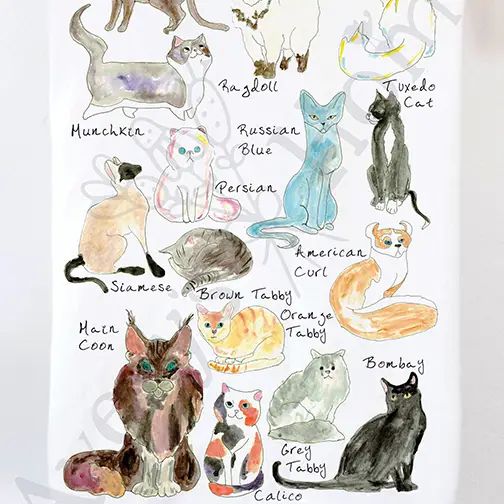 Ragdoll
Tuxedo
Cat
Munchkin
Russian
Blue
Persian
American
Curl
Siamese
Brown Tabby
Orange
Tabby
Main
Coon
Bombay
Grey
Tabby
Calico